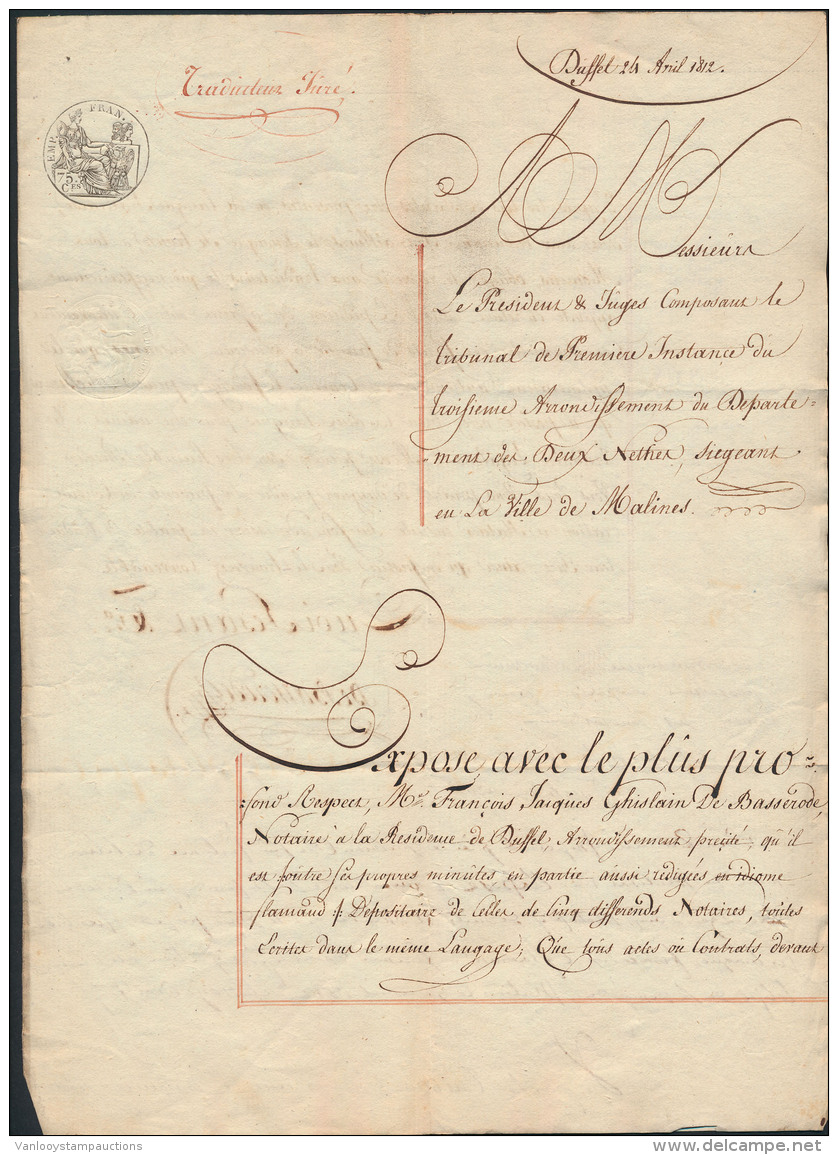 Traducteur Juré.
Duffel 24 Avril 1812.
EMP. FRAN.
75
CES
A Messieurs
Le President & Juges Composant le
tribunal de Premiere Instance du
troisieme Arrondissement du Departe=
=ment des Deux Nethes, siegeant
en La Ville de Malines.
Expose avec le plus pro=
=fond Respect, Mr. François Jacques Ghislain De Basserode,
Notaire a la Residence de Duffel, Arrondissement precité, qu'il
est /: outre ses propres minutes en partie aussi redigées en idiome
flamand :/ Depositaire de Celles de Cinq differends Notaires, toutes
Ecrites dans le même Langage; Que tous actes ou Contrats, devant
Vanlooystampauctions
www.delcampe.net